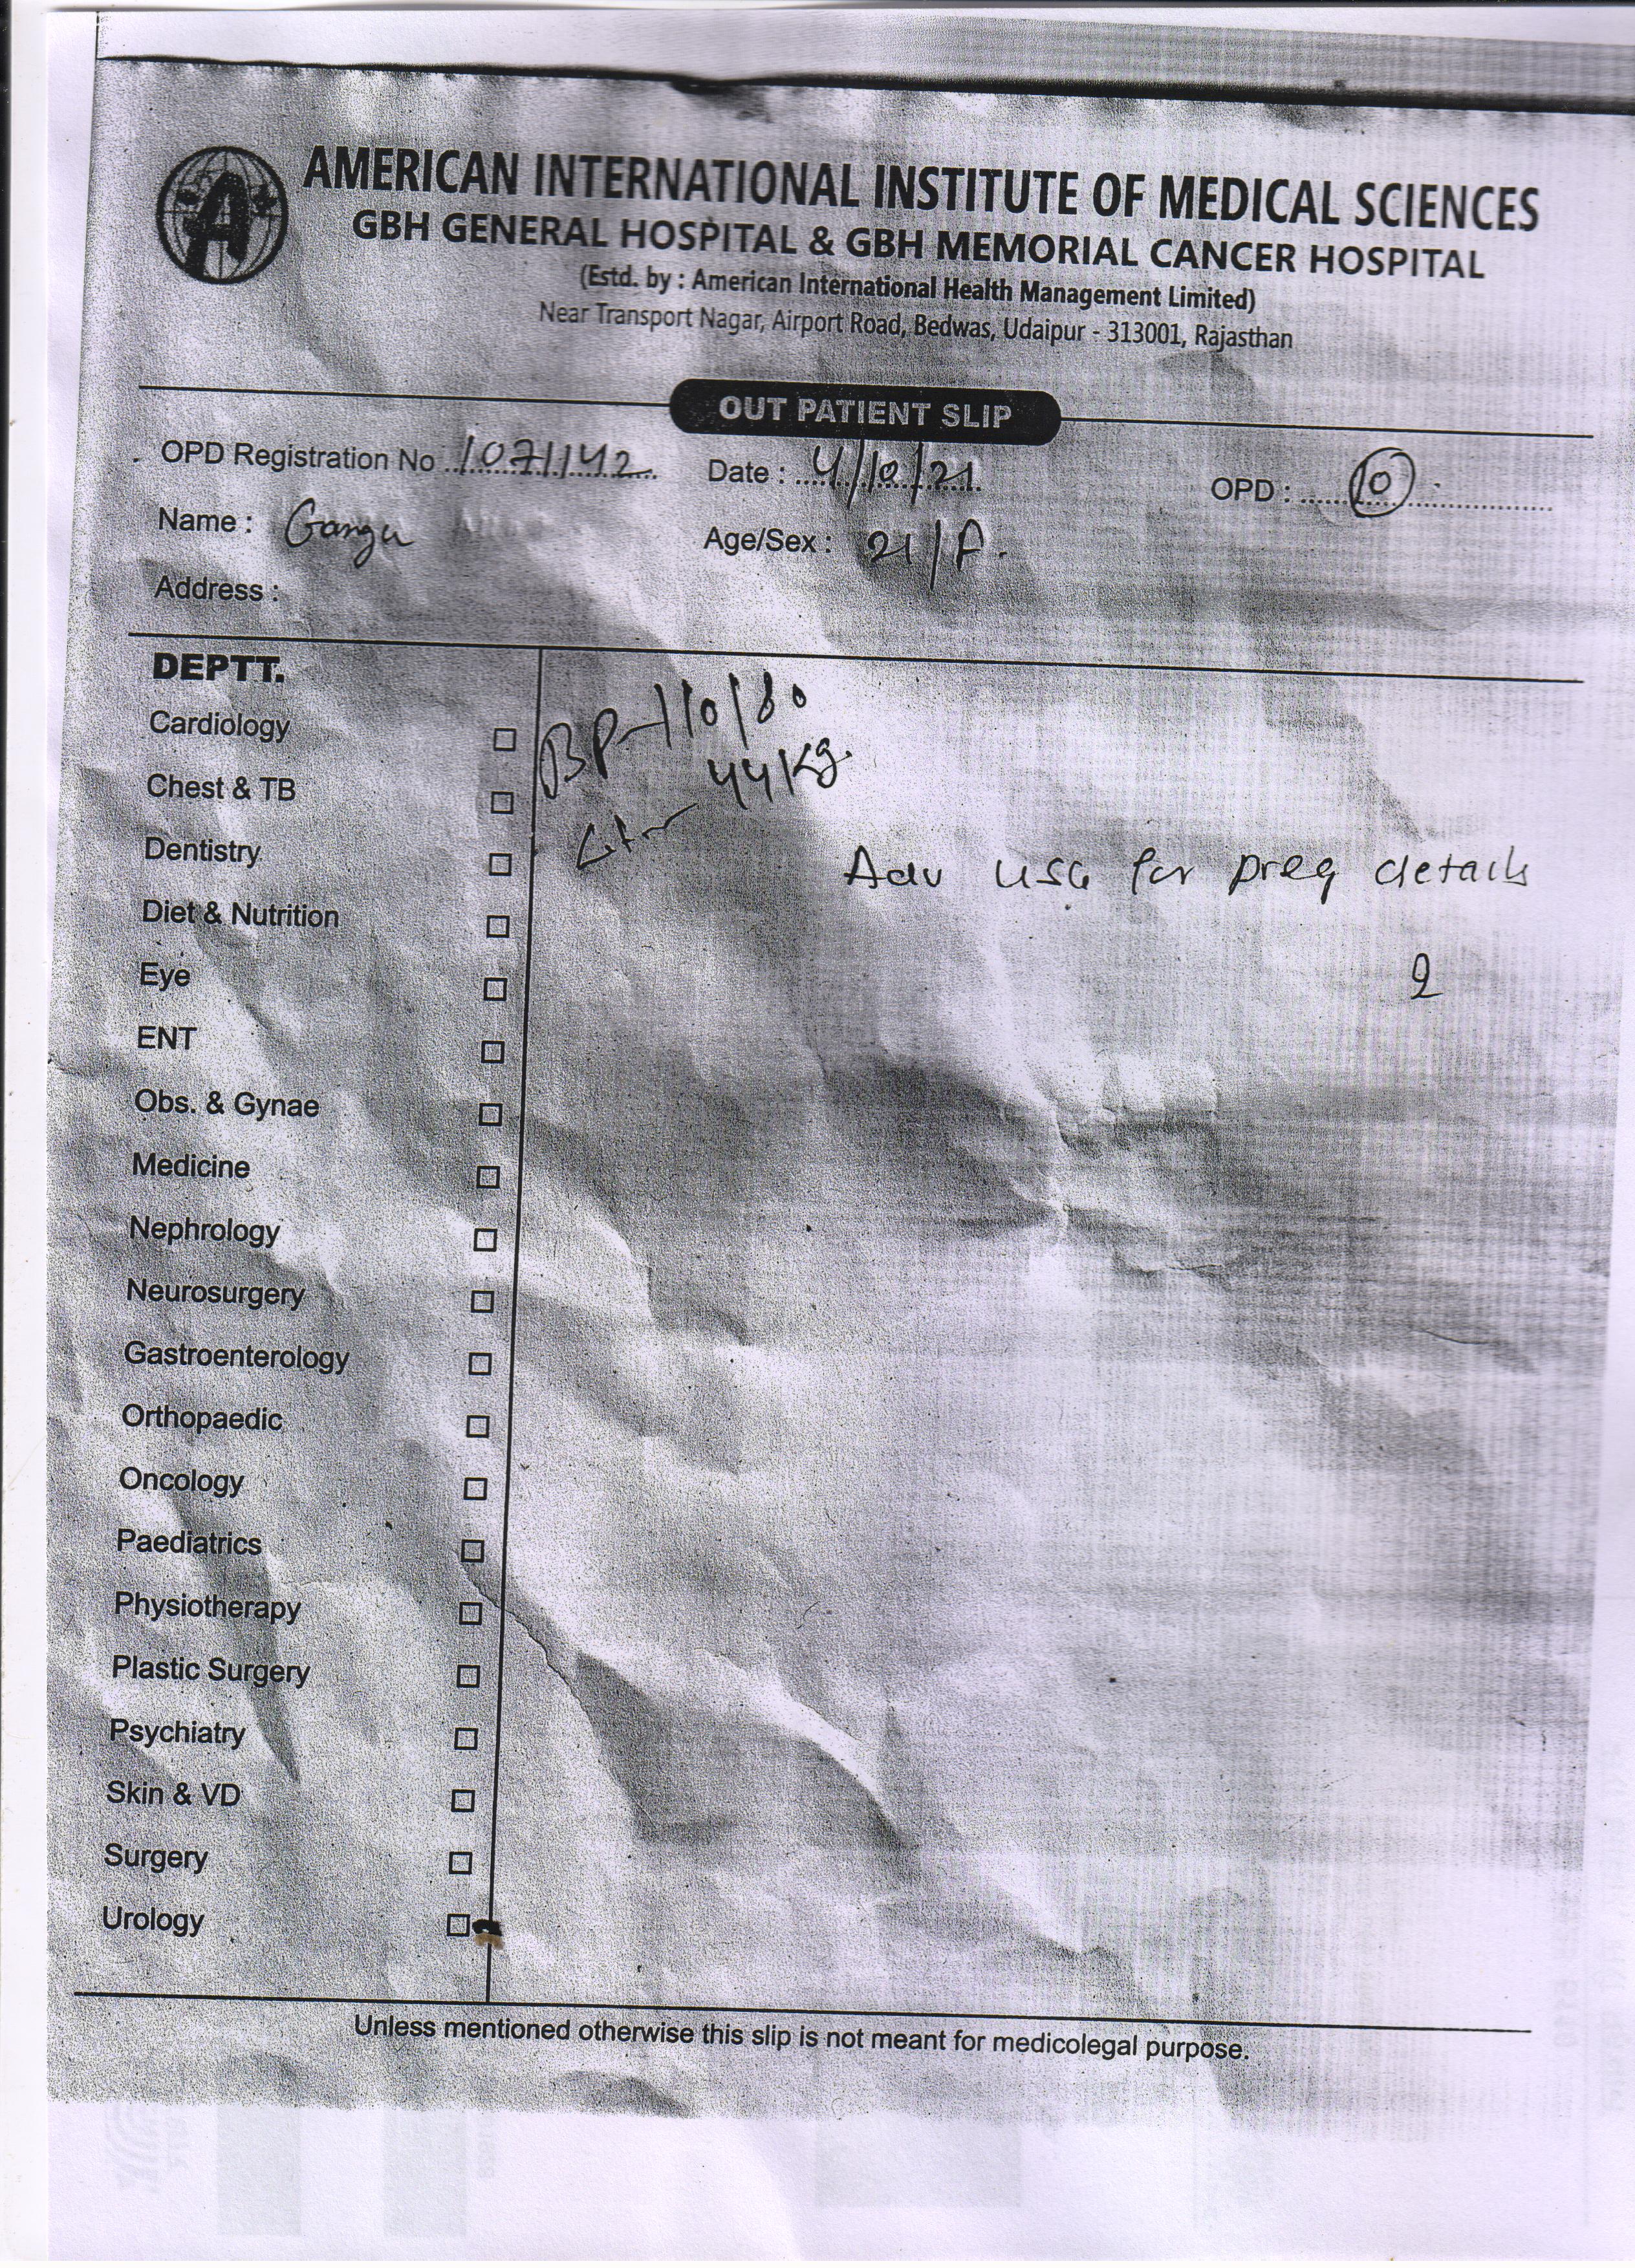 AMERICAN INTERNATIONAL INSTITUTE OF MEDICAL SCIENCES
GBH GENERAL HOSPITAL & GBH MEMORIAL CANCER HOSPITAL
(Estd. by : American International Health Management Limited)
Near Transport Nagar, Airport Road, Bedwas, Udaipur - 313001, Rajasthan
OUT PATIENT SLIP
OPD Registration No 1071142 Date : 4/10/21 OPD : 10
Name : Gangu Age/Sex : 21/F.
Address :
DEPTT.
Cardiology
Chest & TB
Dentistry
Diet & Nutrition
Eye
ENT
Obs. & Gynae
Medicine
Nephrology
Neurosurgery
Gastroenterology
Orthopaedic
Oncology
Paediatrics
Physiotherapy
Plastic Surgery
Psychiatry
Skin & VD
Surgery
Urology
BP-110/80
44Kg
Adv USG for preg details
Unless mentioned otherwise this slip is not meant for medicolegal purpose.